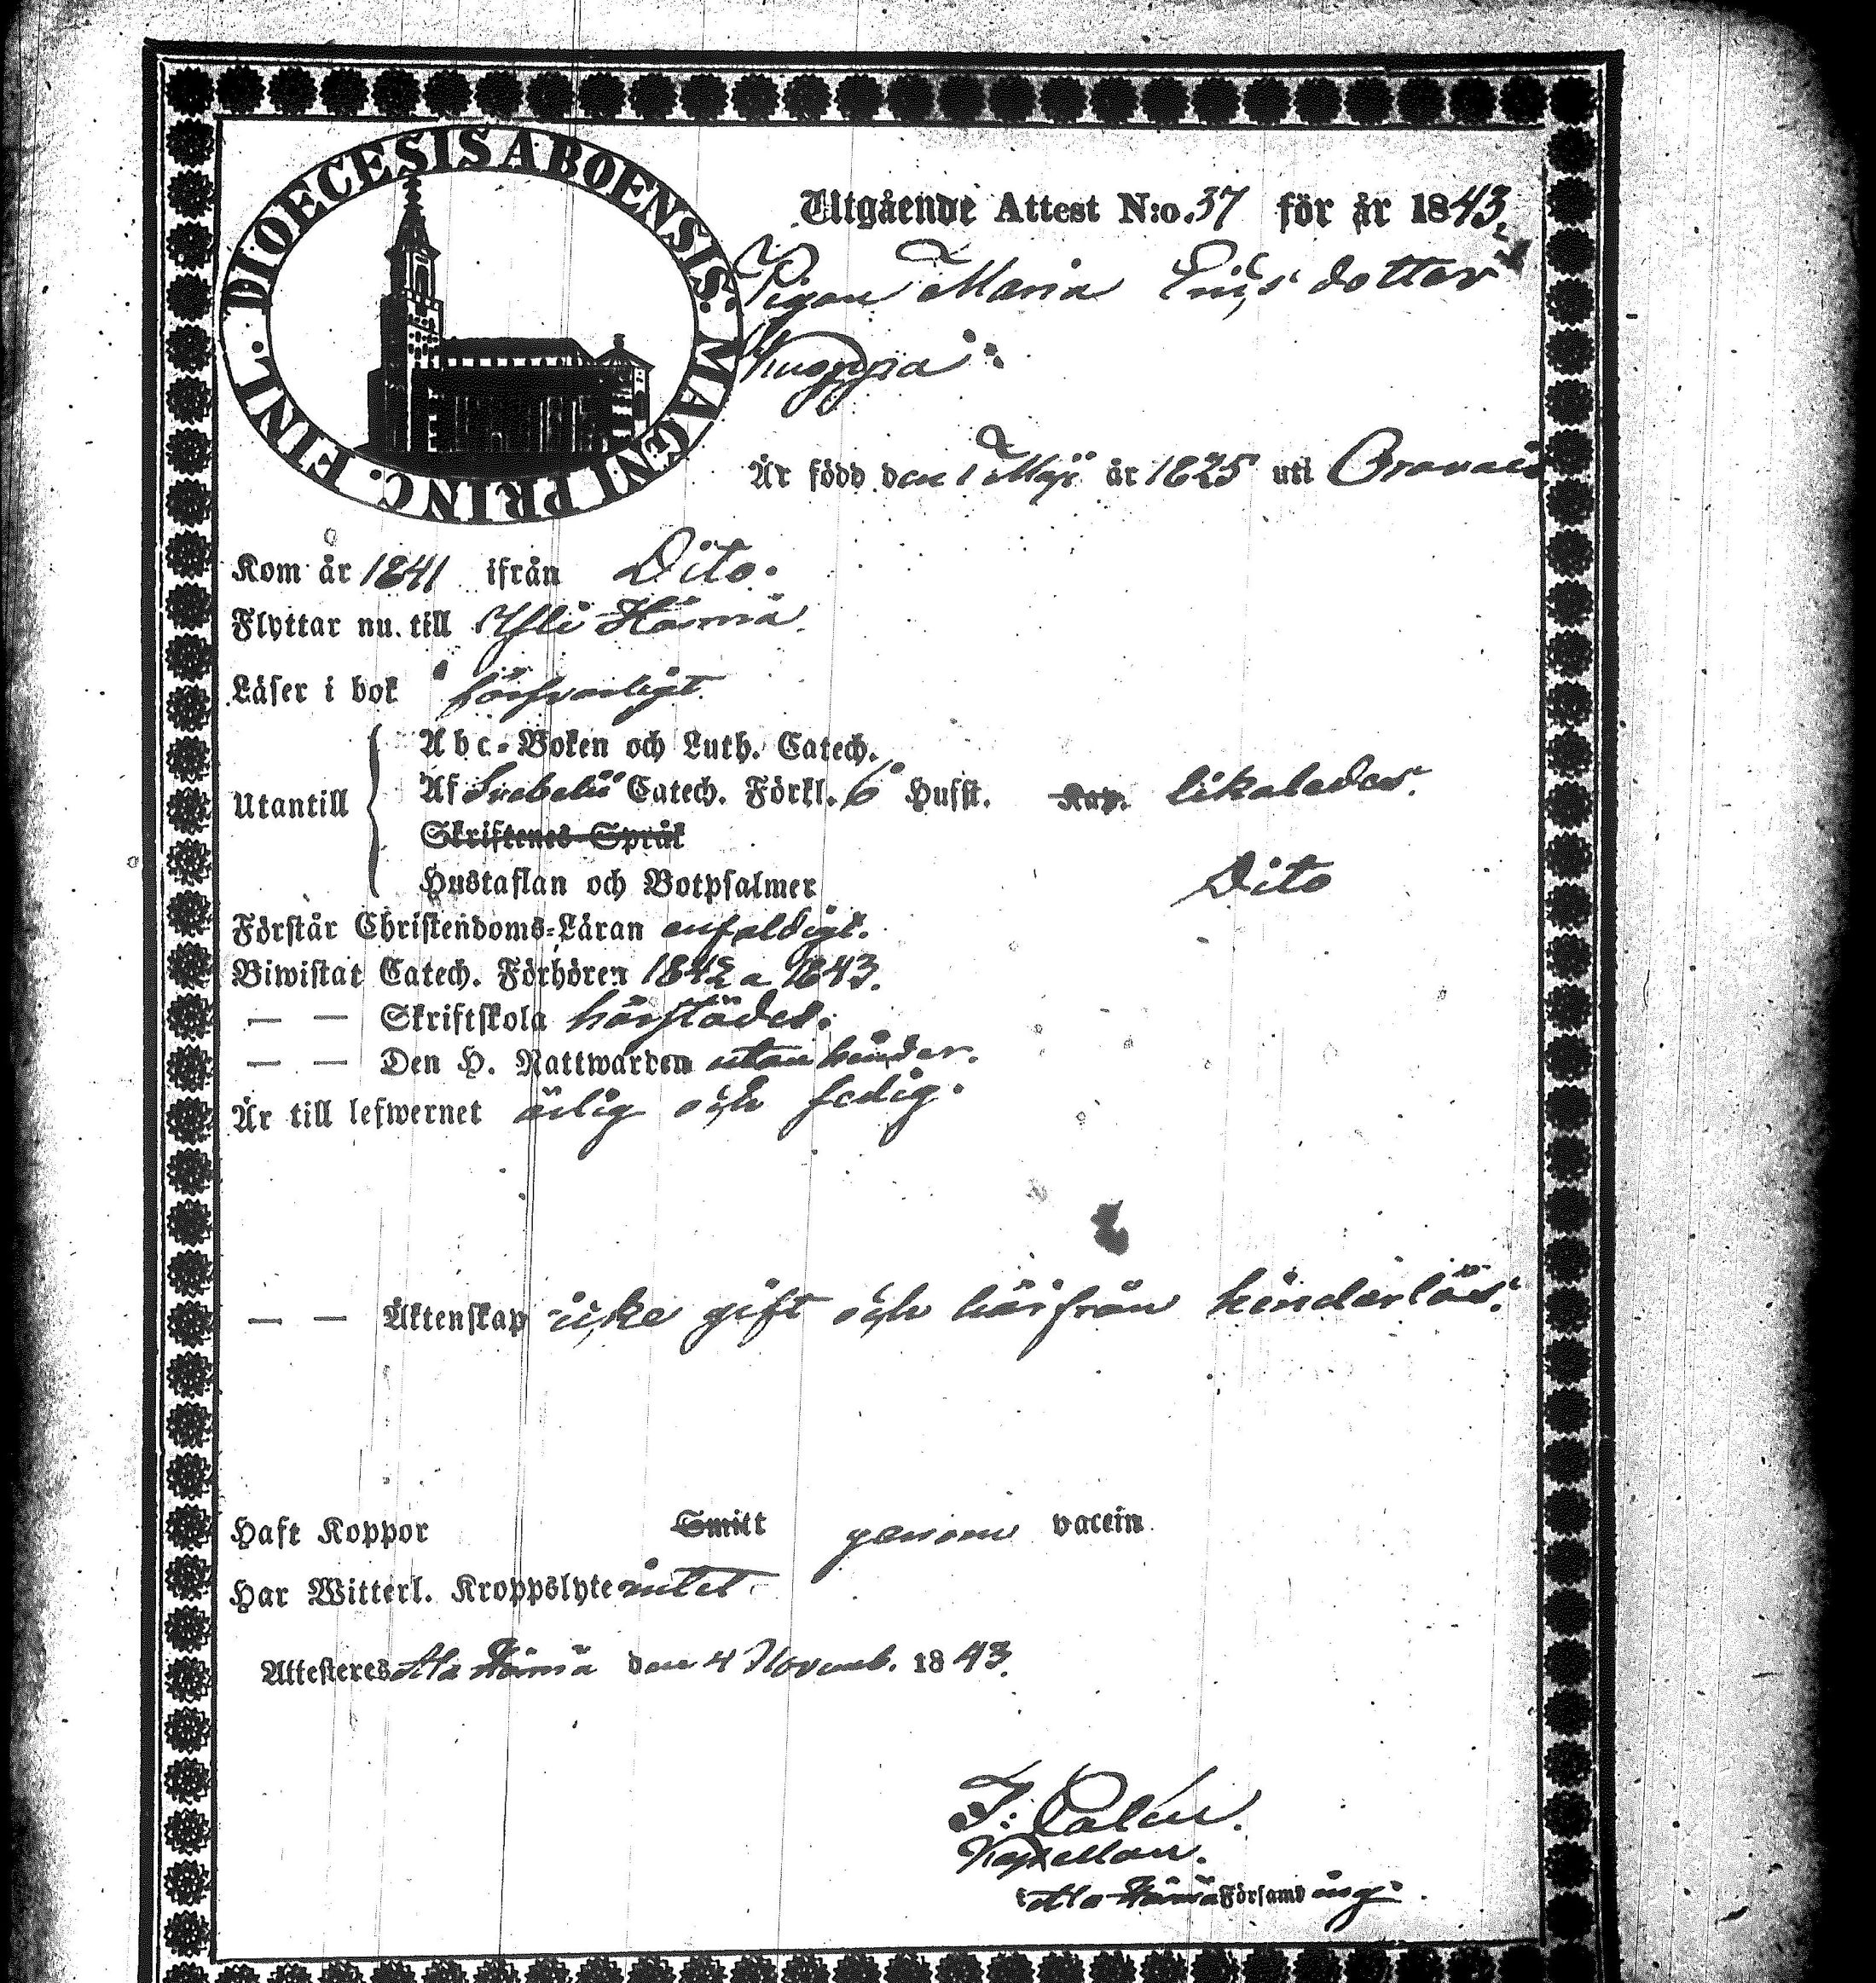 DIOECESIS ABOENSIS. MAGNI PRINC. FINL.
Utgående Attest N:o. 37 för år 1843.
Pigan Maria Ericsdotter
Kuoppa
Är född den 1 Maji år 1825 uti Oravais
Kom år 1841 ifrån Dito.
Flyttar nu till Ylli Härmä.
Läser i bok försvarligt.
Abc-Boken och Luth. Catech.
Utantill Af Svebelii Catech. Förkl. 6 Hufst. Kap. likaledes.
Skriftenes Språk
Hustaflan och Botpsalmer Dito
Förstår Christendoms-Läran enfaldigt.
Biwistat Catech. Förhören 1842 a 1843.
— — Skriftskola härstädes.
— — Den H. Nattwarden utan hinder.
Är till lefwernet ärlig och sedig.
— — Äktenskap icke gift och härifrån hinderlös.
Haft Koppor Smitt genom vaccin
Har Witterl. Kroppslyte intet
Attesteres Ala Härmä den 4 Novemb. 1843.
Kapellan.
i Ala Härmä Församling.